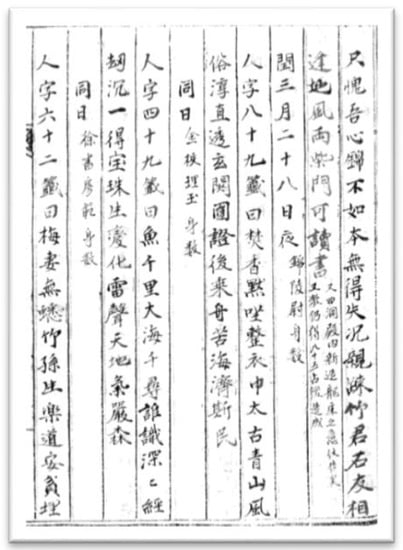 只愧吾心歸不如本無得失况親疎竹君石友相
逢地風雨柴門可讀書
閏三月二十八日夜 錦陵尉身數
人字八十九籤曰焚香黙坐整衣巾太古青山風
俗淳直透玄関圓證後来舟苦海濟斯民
同日 金校理玉 身數
人字四十九籤曰魚千里大海千尋誰識深〻經
劫沉一得宝珠生變化雷聲天地氣嚴森
同日 徐書房 身數
人字六十二籤曰梅妻無竹孫生樂道安貧埋